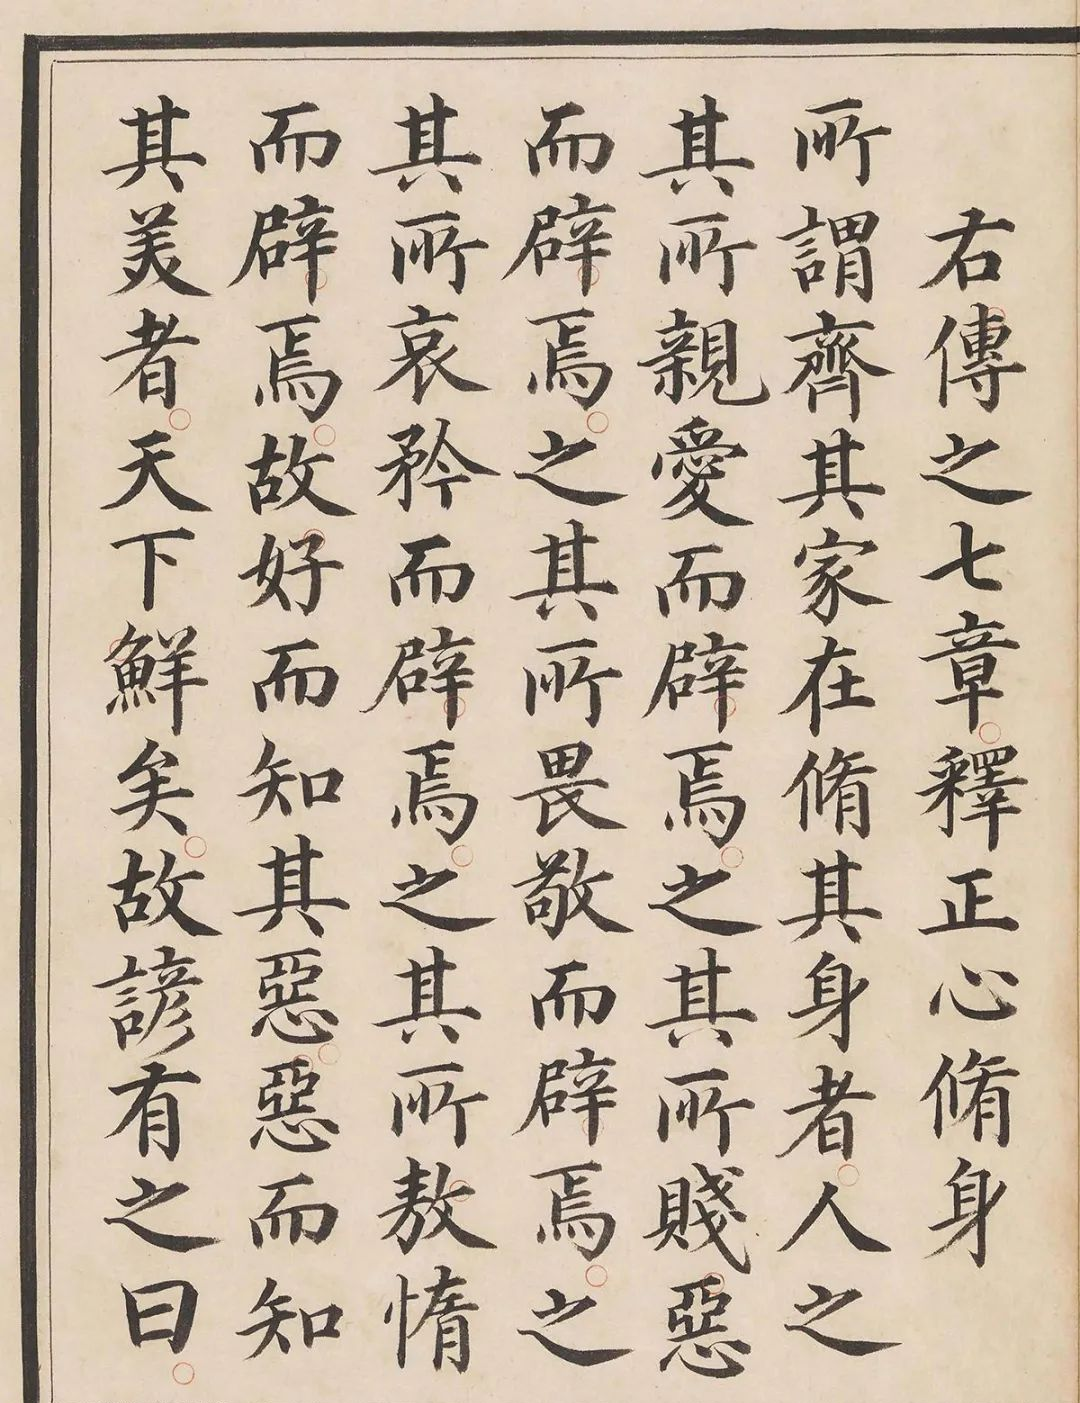 右傳之七章釋正心脩身
所謂齊其家在脩其身者人之
其所親愛而辟焉之其所賤惡
而辟焉之其所畏敬而辟焉之
其所哀矜而辟焉之其所敖惰
而辟焉故好而知其惡惡而知
其美者天下鮮矣故諺有之曰